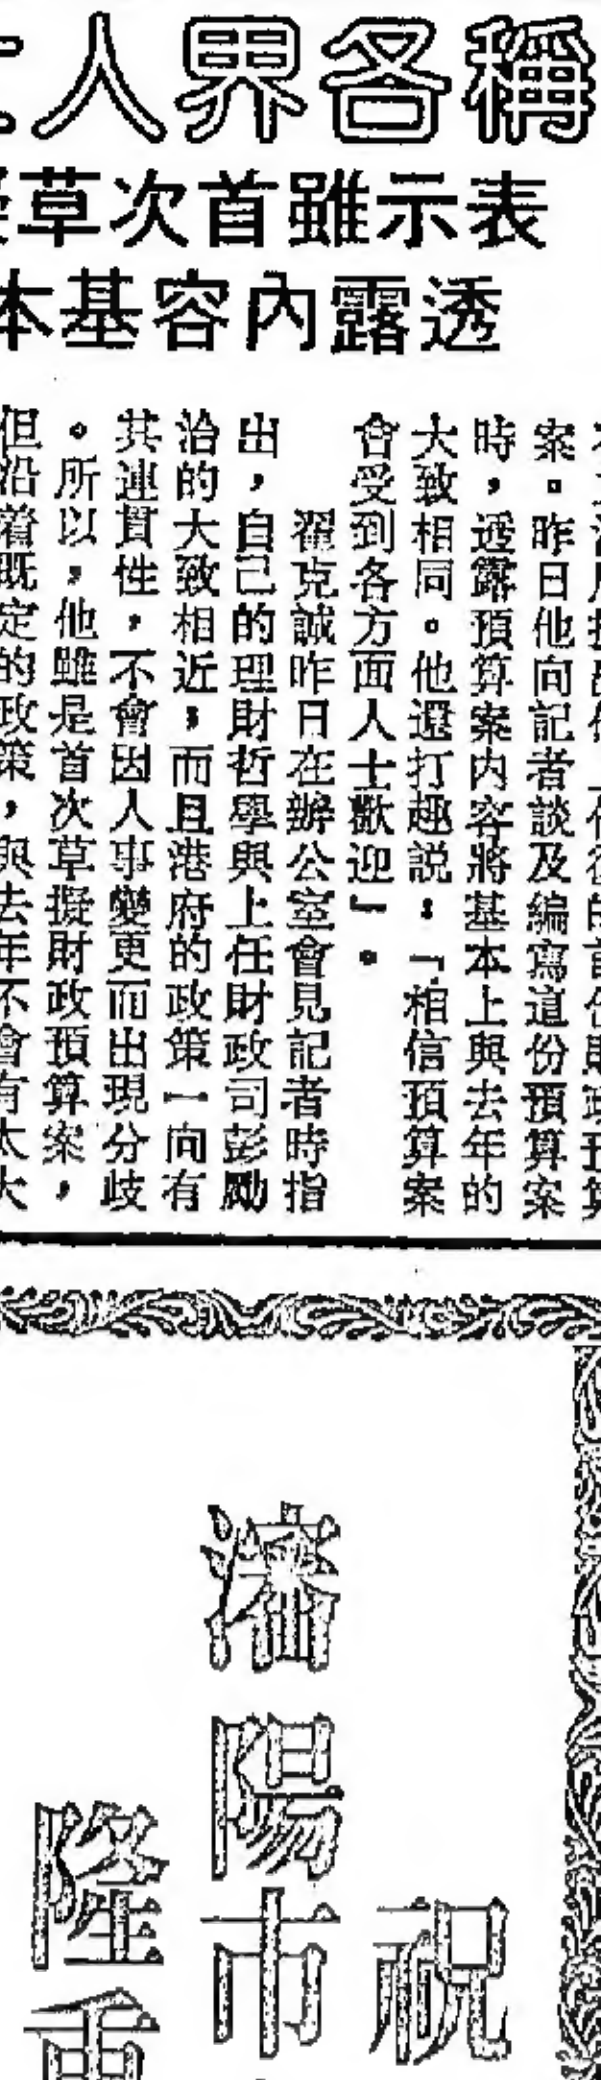 稱各界人
表示雖首次草
透露內容基本
案。昨日他向記者談及編寫這份預算案
時,透露預算案内容將基本上與去年的
大致相同。他還打趣説:「相信預算案
會受到各方面人士歡迎」。
翟克誠昨日在辦公室會見記者時指
出,自己的理財哲學與上任財政司彭勵
治的大致相近;而且港府的政策一向有
其連貫性,不會因人事變更而出現分歧
。所以,他雖是首次草擬財政預算案,
但沿着既定的政策,與去年不會有太大
祝
瀋陽市
隆重